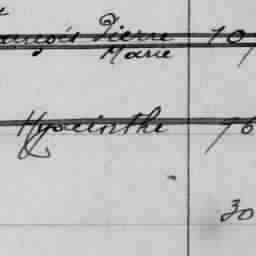 ançois Pierre 10
Marie 1
Hyacinthe 76
30